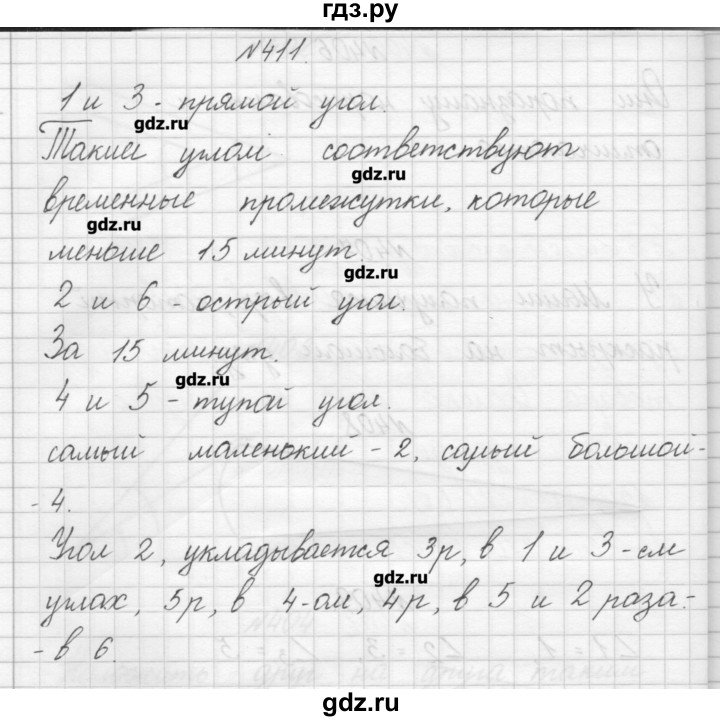 гдз.ру
№411.
1 и 3 - прямой угол.
gdz.ru
Такий углом соответствуют
gdz.ru
временные промежутки, которые
gdz.ru
меньше 15 минут.
gdz.ru
2 и 6 - острый угол.
За 15 минут.
gdz.ru
4 и 5 - тупой угол.
самый маленький - 2, самый большой -
- 4.
Угол 2, укладывается 3р, в 1 и 3-ем
gdz.ru
углах, 5р, в 4-ом, 4р, в 5 и 2 раза -
- в 6.
gdz.ru